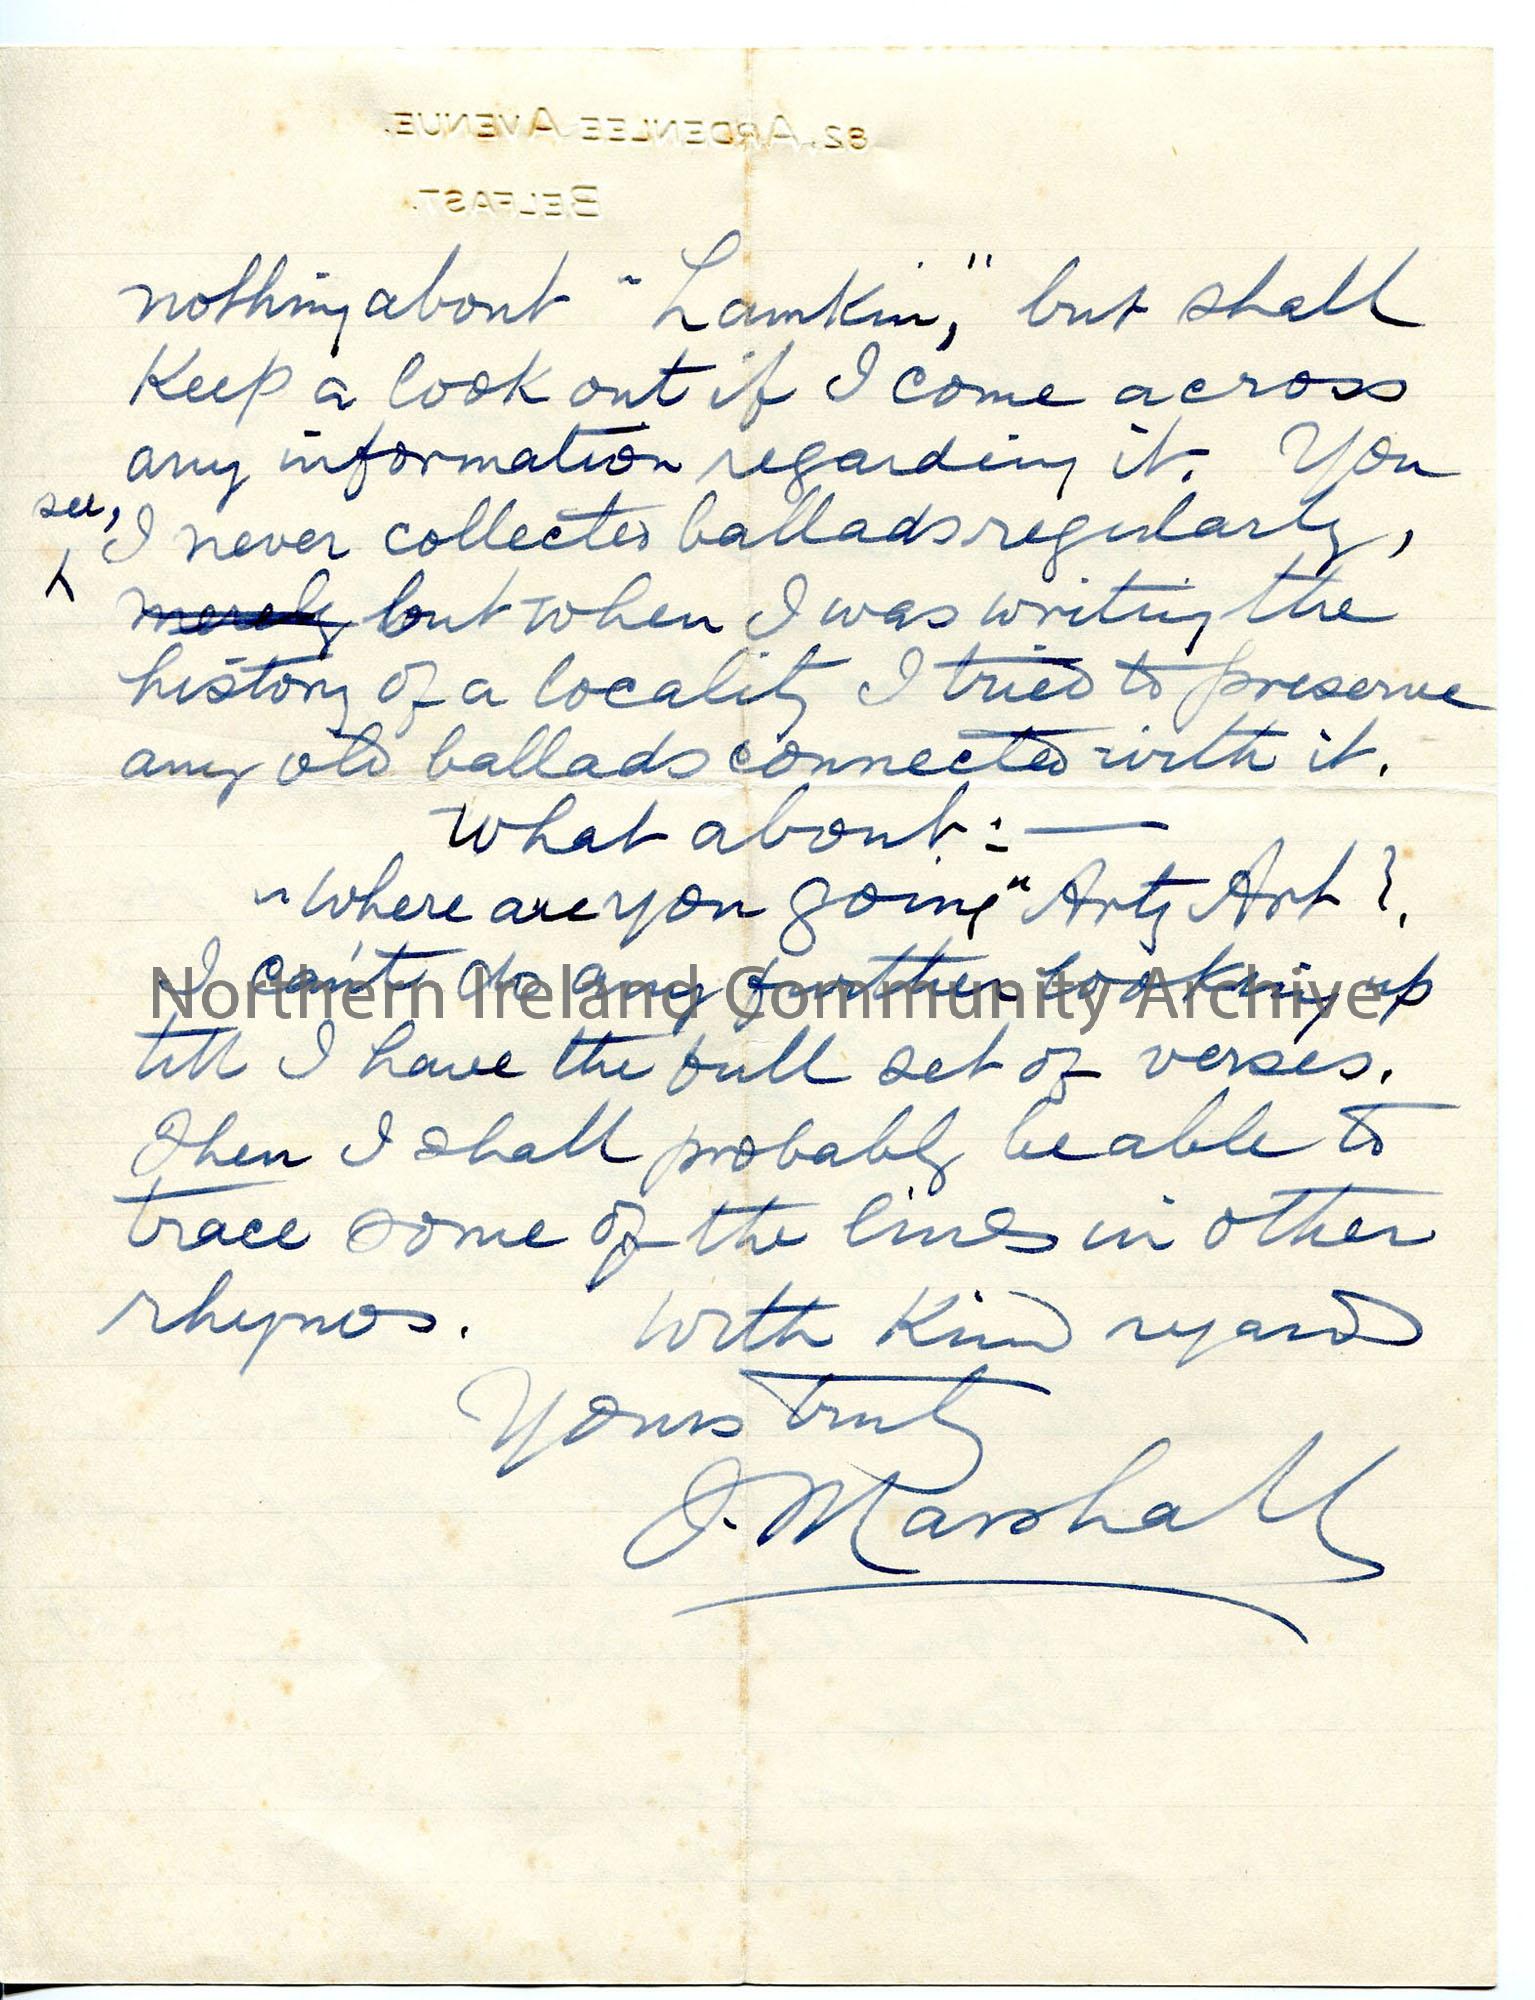 82, ARDENLEE AVENUE.
BELFAST.
nothing about "Lamkin," but shall
Keep a look out if I come across
any information regarding it. You
see,
I never collected ballads regularly,
merely but when I was writing the
history of a locality I tried to preserve
any old ballads connected with it.
What about :—
"Where are you going" Arty Art?
I can't do any further looking up
till I have the full set of verses.
Then I shall probably be able to
trace some of the lines in other
rhymes. With Kind regard
Yours truly
J. Marshall
Northern Ireland Community Archive